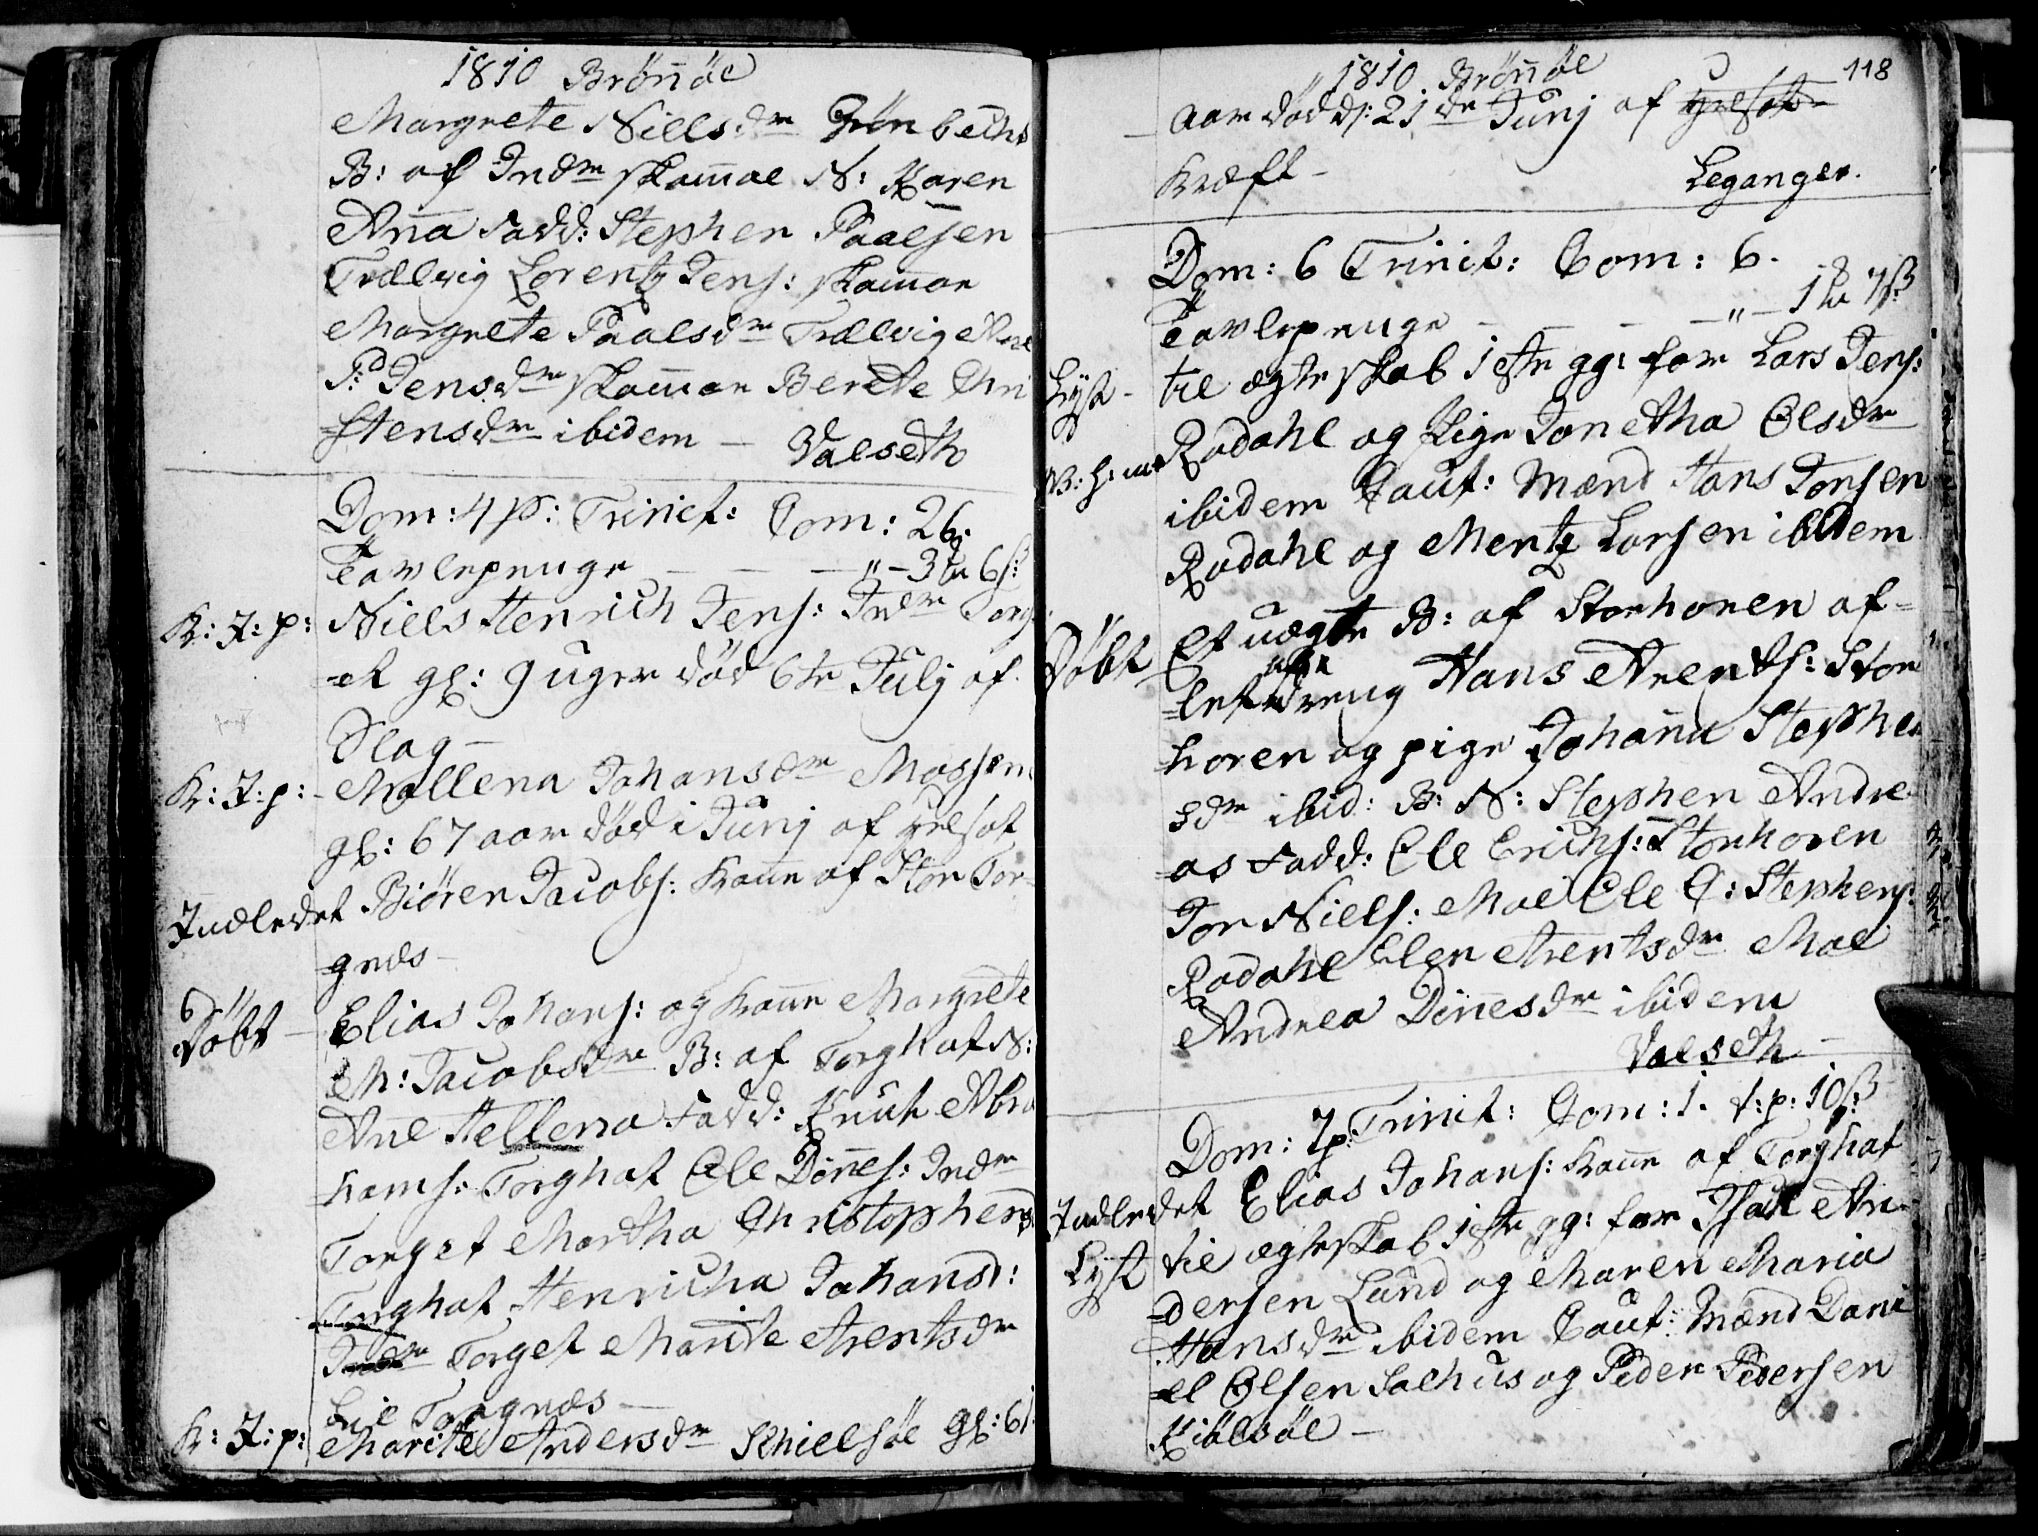 1810 Brönöe
Margrete Nielsdr Grönbechs
B: af Indr skamoe N: Karen
Ana Fadd: Stephen Paalsen
Trælvig Lorentz Jens: skamoe
Margrete Paalsdr Trælvig
P:d Jensdr skamoe Berete Chri
=stensdr ibidem — Valseth
Dom: 4 p: Trinit: Com: 26.
Tavlepenge — — — „ - 3 6ß:
K: J: p: Niels Henrich Jens: Indr Torg
=et gl: 9 uger død 6te Julj af
Slag —
K: J: p: - Mallena Johansdr Mossem
gl: 67 aar død i Junj af
Indledet Biören Jacobs: kone af Stor Tor=
=gnæs —
Döbt — Elias Johans: og kone Margrete
M: Jacobsdr B: af Torghat N:
Ane Hellena Fadd: Knut Abra
=hams: Torghat Ole Dönes: Indr
Torget Martha Christophersd
Torghat Henricha Johansd:
Indr Torget Marite Arentsdr
Lil Torgnæs —
K: J: p: Marite Andersdr Schielsöe gl: 61
1810. Brönöe 118
aar død d: 21de Junj af
Kræft — Leganger.
Dom: 6 Trinit: Com: 6.
Tavlepenge — — — „ — 1 7ß
Lyst — til ægteskab 1ste gg: for Lars Jens:
Rodahl og Pige Jonetha Olsdr
ibidem Caut: Mænd Hans Jonsen
Rodahl og Mentz Larsen ibidem
Döbt Et uægte B: af Storhoren af=
=let Dreng Hans Arents: Stor
=horen og pige Johana Stephen
sdr ibid: B: N: Stephen Andre
=as Fadd: Ole Erichs: Storhoren
Jon Niels: Moe Ole C: Stephens:
Rodahl Elen Arentsdr Moe
Andrea Dönesdr ibidem
Valseth —
Dom: 7 p: Trinit: Com: 1. t: p: 10ß:
Indledet Elias Johans: kone af Torghat
Lyst til ægteskab 1ste gg: for Isach An
=dersen Lund og Maren Maria
Hansdr ibidem Caut: Mænd Dani
=el Olsen Salhus og Peder Pedersen
Kiölsöe —